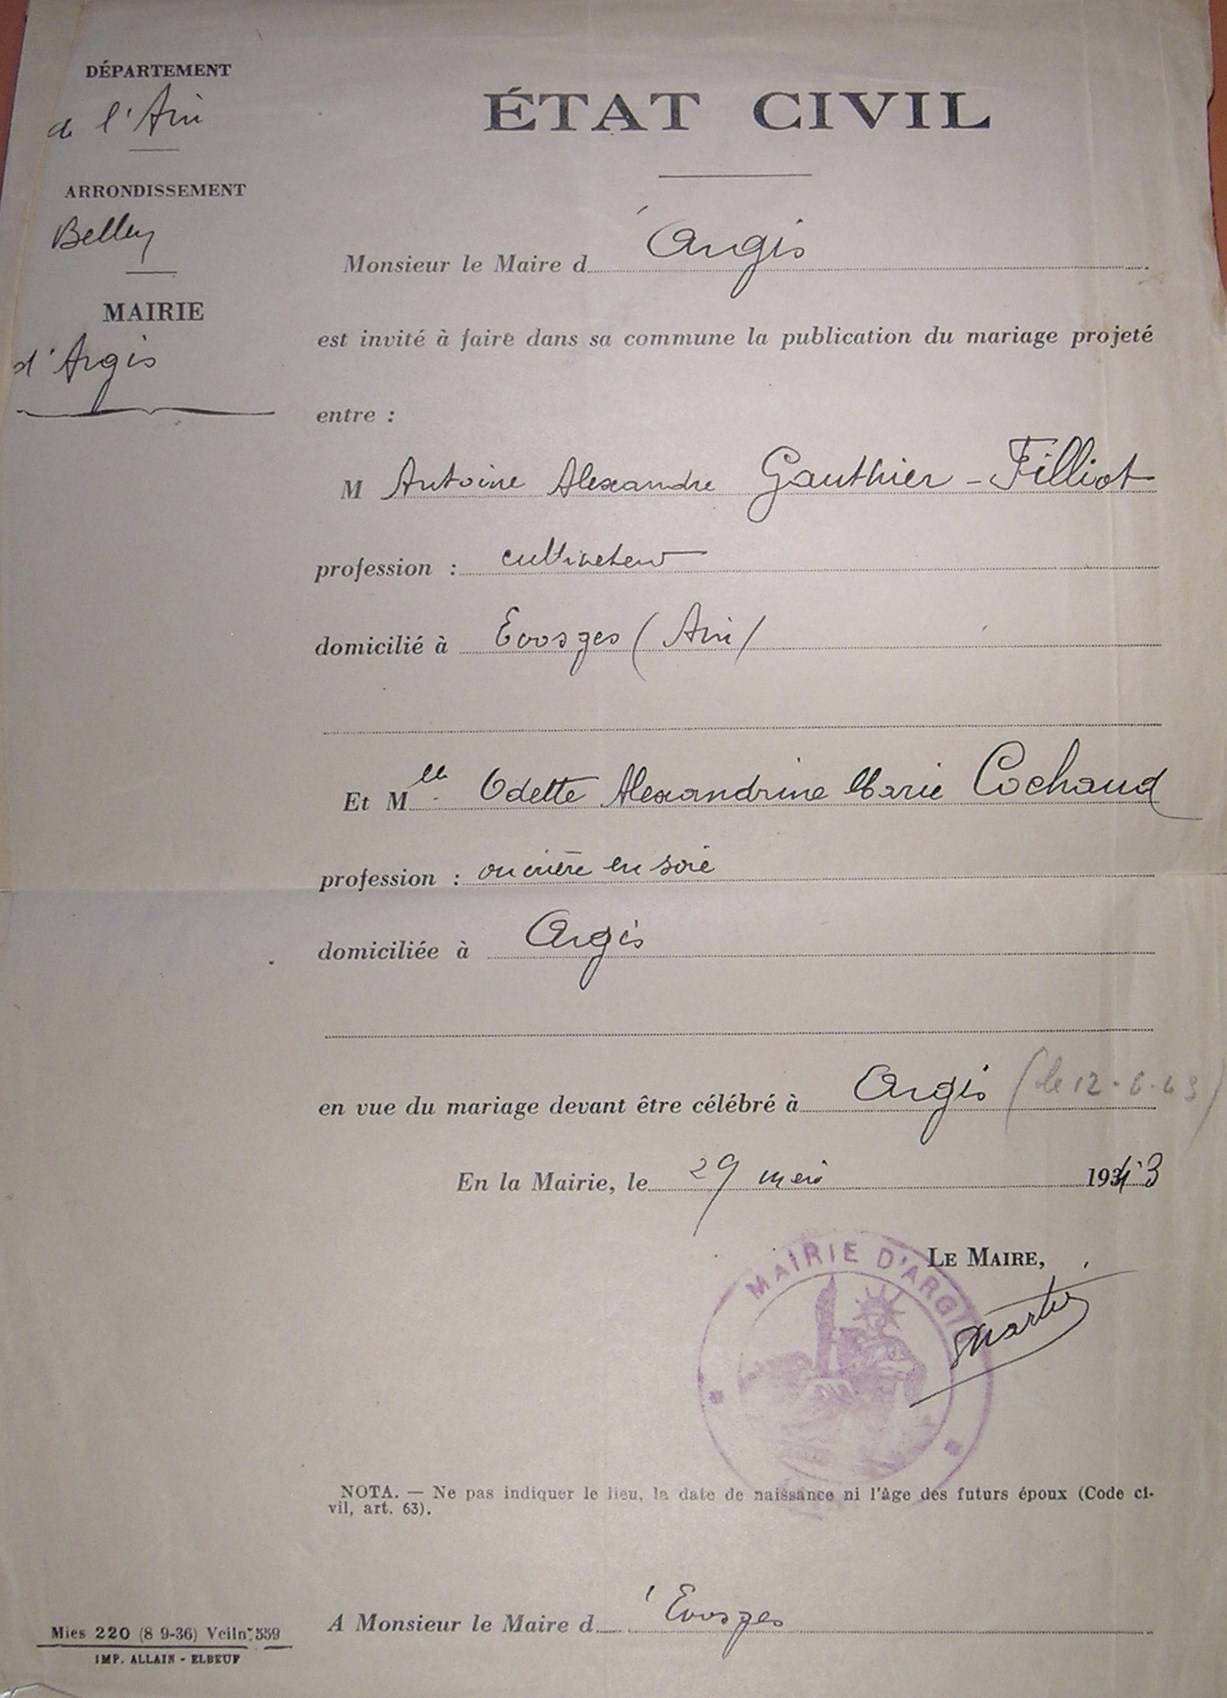 DÉPARTEMENT
de l'Ain
ARRONDISSEMENT
Belley
MAIRIE
d'Argis
ÉTAT CIVIL
Monsieur le Maire d'Argis
est invité à faire dans sa commune la publication du mariage projeté
entre :
M Antoine Alexandre Gauthier-Filliot
profession : cultivateur
domicilié à Evosges (Ain)
Et Mlle Odette Alexandrine Marie Cochaud
profession : ouvrière en soie
domiciliée à Argis
en vue du mariage devant être célébré à Argis (le 12-6-43)
En la Mairie, le 29 mai 1943
LE MAIRE,
Martin
MAIRIE D'ARGIS
NOTA. — Ne pas indiquer le lieu, la date de naissance ni l'âge des futurs époux (Code ci-
vil, art. 63).
A Monsieur le Maire d'Evosges
Mies 220 (8 9-36) Veiln: 559
IMP. ALLAIN - ELBEUF